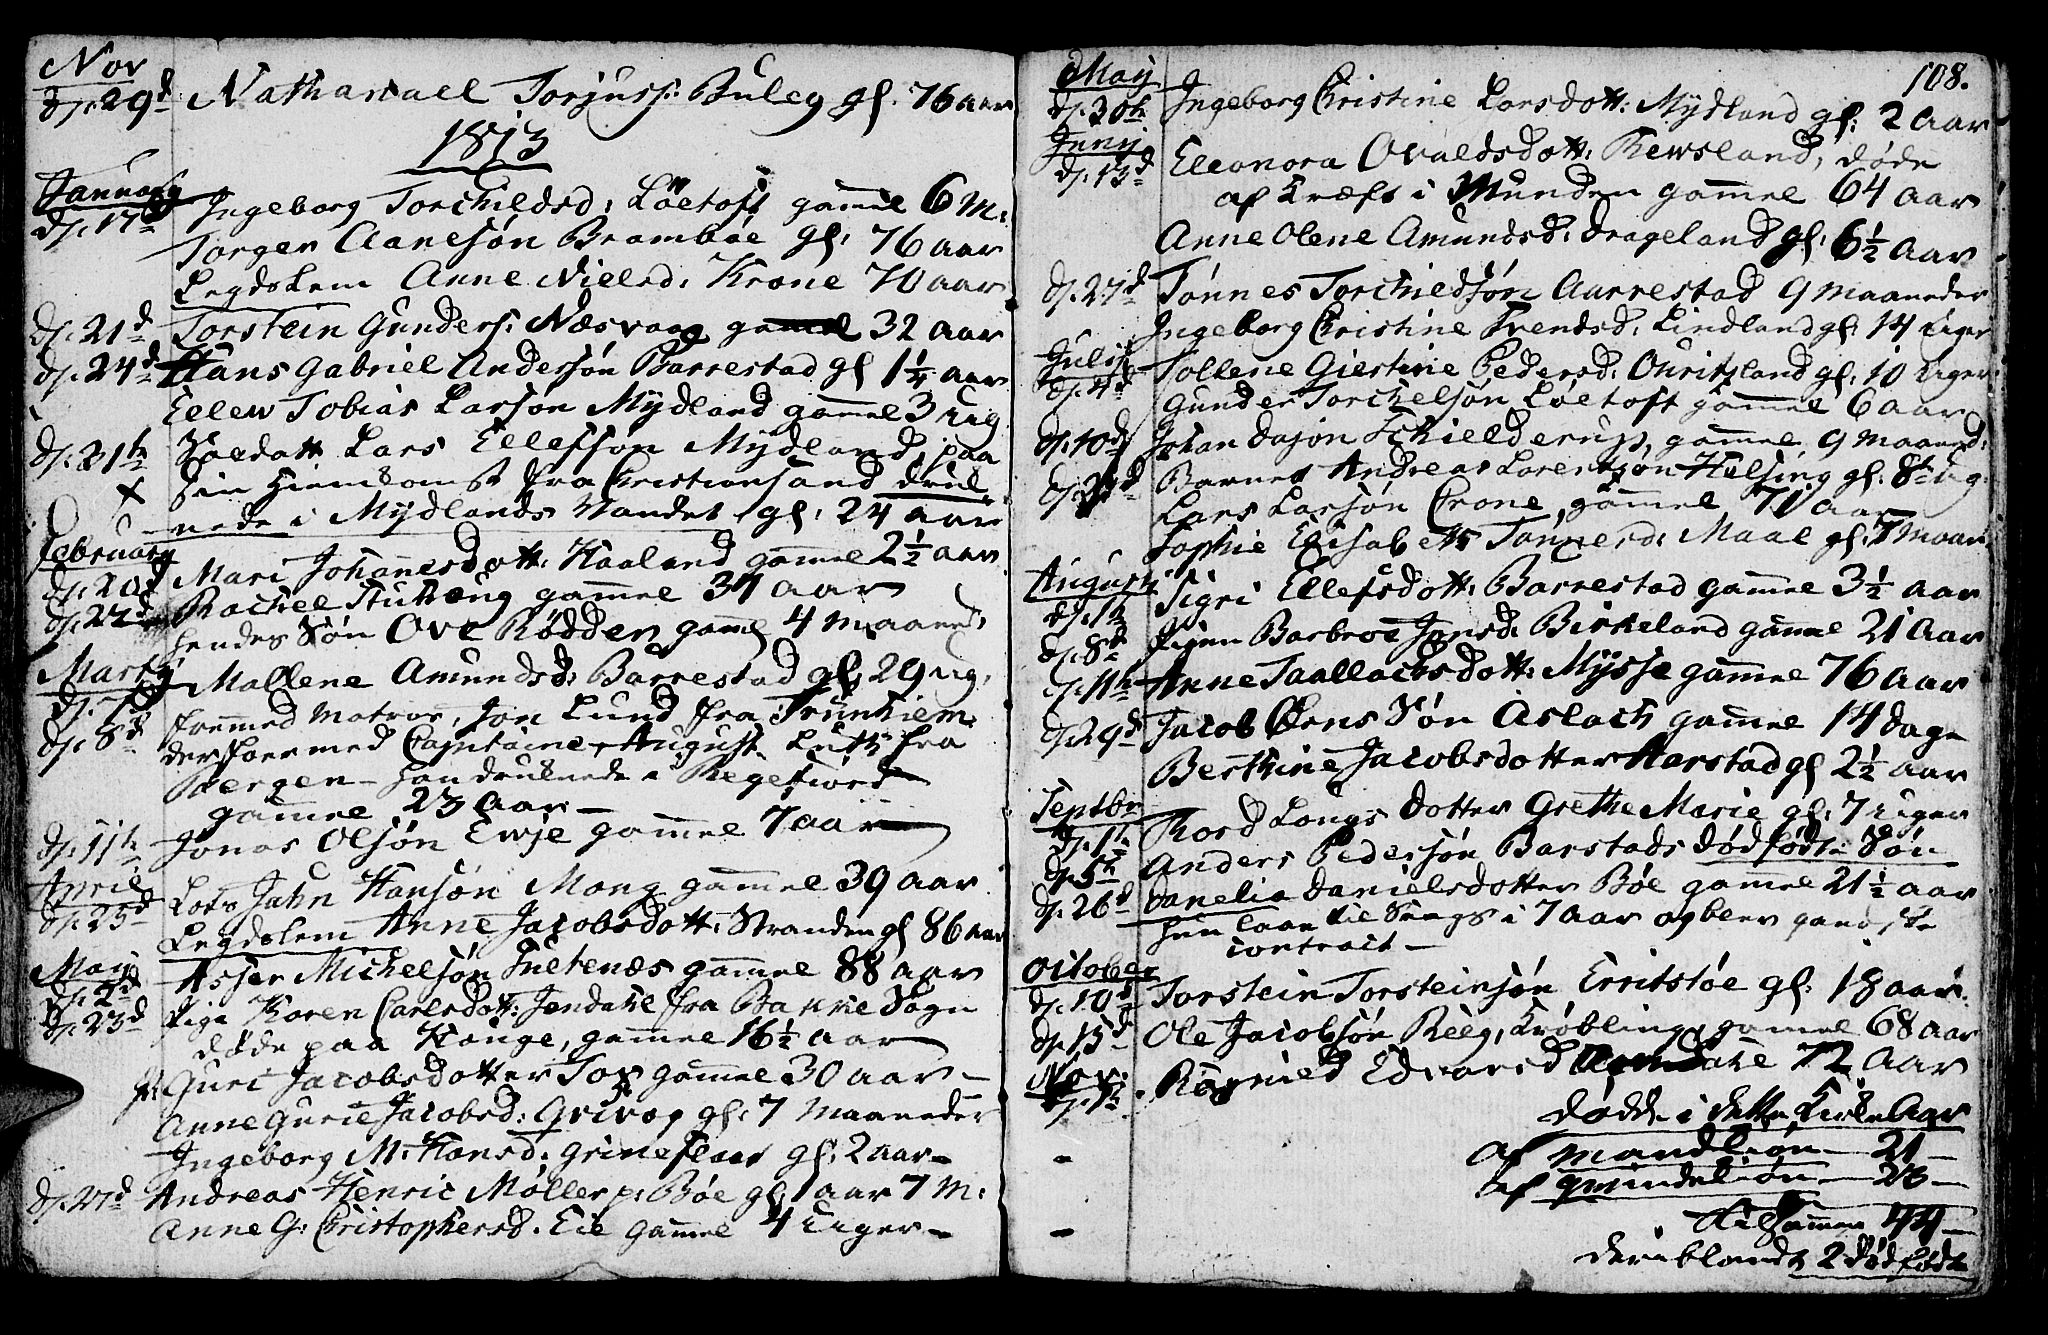 Nov
d. 29d Nathanael Torjuss: Buleg gl. 76 aar
1813
January
d. 17d Ingeborg Torchildsd: Löetoft gamel 6 M:
Torger Aanesøn Brambøe gl: 76 aar
Legdslem Anne Nielsd: Krone 70 aar
d. 21d Torstein Gunders: Næsvaag gamel 32 aar
d. 24d Hans Gabriel Andersøn Barrestad gl 1 1/4 aar
Ellew Tobias Larsøn Mydland gamel 3 Ug
d. 31te Soldatt Lars Ellefsøn Mydland, paa
x sin Hiemkomst fra Christiansand druk-
nede i Mydlands Vandet gl: 24 aar
February
d. 20d Mari Johanesdott: Haaland gamel 2 1/2 aar
d. 22d Rachel Stuhaug gamel 37 aar
hendes Søn Ove Rødder gaml 4 maaned:
Marty
d. 7d Mallene Amundsd: Barrestad gl: 29 Ug:
d. 8d fremmed Matros, Jon Lund fra Trunhiem
der foer med Capitaine August Luth fra
Bergen - han druknede i Regefiord
gamel 23 aar -
d. 11te Jonas Olsøn Ewje gamel 7 aar
April
d. 25d Lots Jahn Hansøn Mong gamel 39 aar
Legdslem Anne Jacobsdott: Stranden gl 86 aar
May
d. 2d Asser Michelsøn Tuetenæs gamel 88 aar
d. 23d Pige Karen Carlsdott: Jendahl fra Bakke Sogn
døde paa Hauge, gamel 16 1/2 aar
Guri Jacobsdotter Tos gamel 30 aar -
Anne Gurie Jacobsd: gl: 7 Maaneder
Ingeborg M: Hansd: Grinefleer gl: 2 aar -
d. 27d Andreas Henric Møller p: Bøe gl 1 aar 7 M:
Anne G: Christophersd. Eie gamel 4 Uger -
108.
May
d. 30te Ingeborg Christine Larsdott: Mydland gl: 2 Aar
Juny
d. 13d Eleonora Ovaldsdott: Rewsland, døde
af Kræft i Munden gamel 64 aar
Anne Olene Amundsd: Drageland gl: 6 1/2 aar
d. 27d Tönnes Torchildsøn Aarrestad 9 maaneder
Ingeborg Christine Svendsd: Lindland gl: 14 Uger
July
d. 4d Tollene Giertine Pedersd: Ouritsland gl: 10 Uger
Gunder Torchelsøn Løetoft gamel 6 aar
d. 10d Johan Dasøn Schielderup, gamel 9 Maaned:
d. 25d Barnet Andreas Lorentsøn Helsing gl: 8te Ug:
Lars Larsøn Crone, gamel 71 aar
Sophie Elisabeth Tönnesd: Maal gl: 7 Maan
Augusti
d. 1te Sigri Ellefsdott: Barrestad gamel 3 1/2 aar
d. 8d Pigen Barbroe Jonsd: Birkeland gamel 21 Aar
d. 11te Anne Taallachsdott: Mysse gamel 76 aar
d. 29d Jacob Ørns Søn Aslach gamel 14 dage
Berthine Jacobsdotter Harstad gl 2 1/2 aar
Septbr
d. 1te Thord Longs Dotter Grethe Marie gl: 7 Uger
d. 5te Anders Pedersøn Barstads dødfødte Søn
d. 26d Danelia Danielsdotter Bøe gamel 21 1/2 aar
hun laae til Sengs i 7 aar og blev gandske
contract -
October
d. 10d Torstein Torsteinsøn Erritstøe gl: 18 aar:
d. 15d Ole Jacobsøn Reeg, Krøbling, gamel 68 aar
Nov:
d. 7te Ragnild Edvarsd 72 Aar
dødde i dette Kirke Aar
af Mandkiøn - 21 -
af Qvindekiøn - 23 -
tilsammen 44 -
deriblandt 2 dødfødte